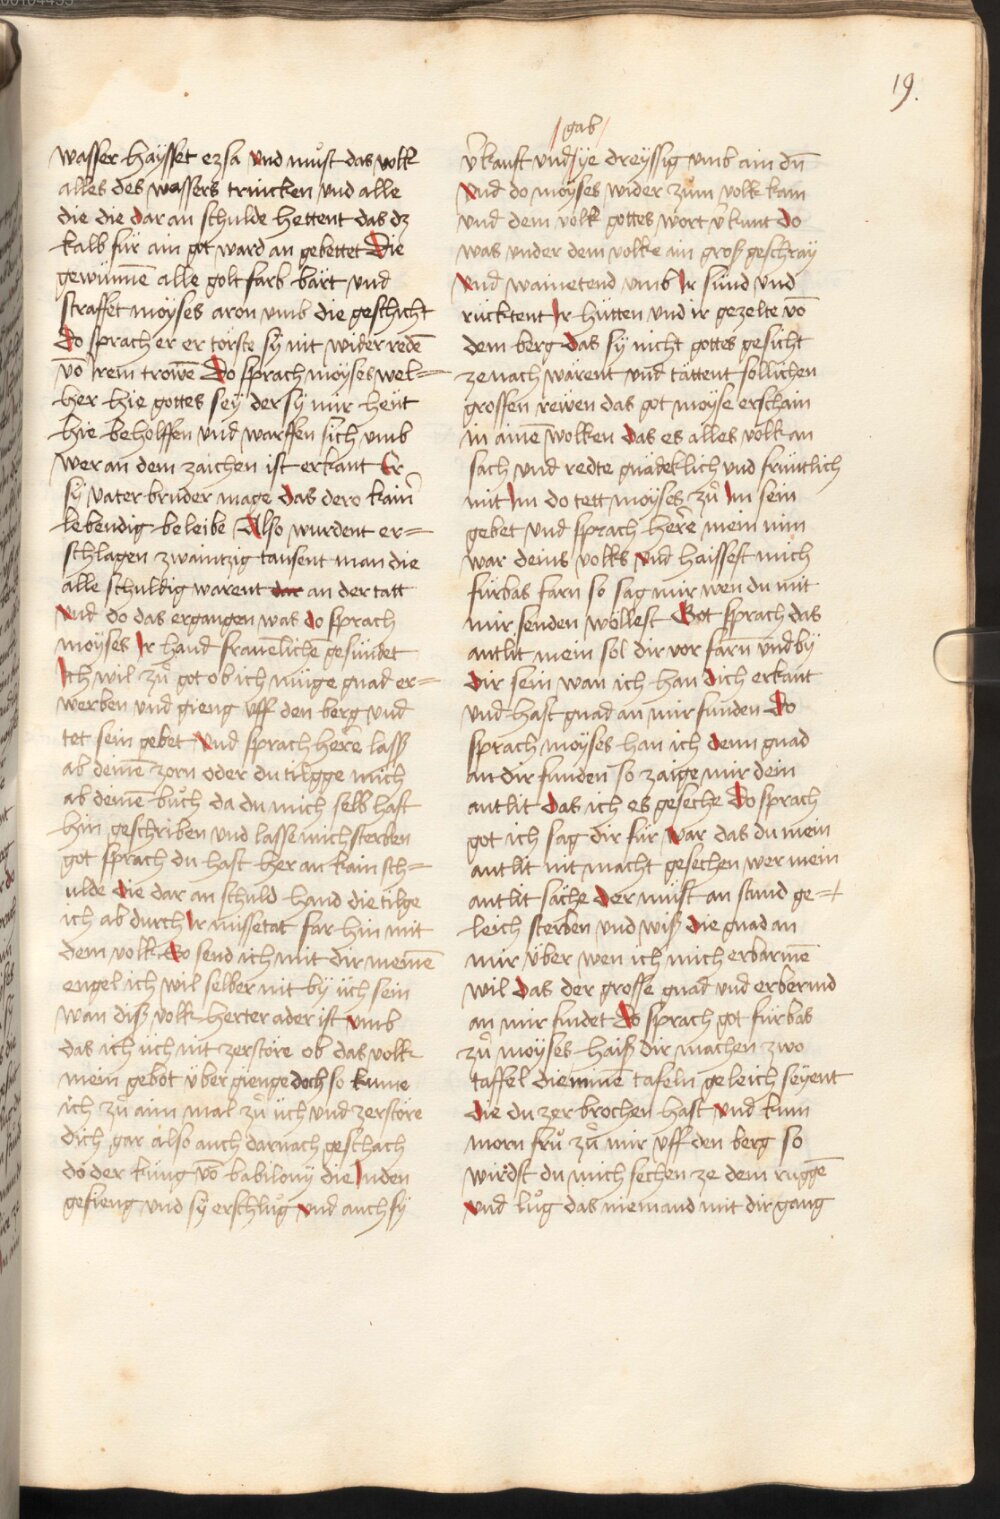 19.
wasser haysset ezsa vnd můst das volk
alles des wassers trincken vnd alle
die die dar an schulde hettent das dz
kalb für ain got ward an gebettet Die
gewunnē alle golt farb bärt vnd
straffet moyses aron vmb die geschicht
Do sprach er er torste sÿ nit wider redē
vō irem trowē Do sprach moyses wel=
her hie gottes seÿ der sÿ mir heüt
hie beholffen vnd warffen sich vmb
wer an dem zaichen ist erkant Er
sÿ vater bruder mage das dero kain͛
lebendig beleibe Also wurdent er=
schlagen zwaintzig tausent man die
alle schuldig warent an der tatt
vnd do das ergangen was do sprach
moyses Ir hand frauēliche gesündet
Ich wil zů got ob ich müge gnad er=
werben vnd gieng vff den berg vnd
tet sein gebet vnd sprach here lass
ab deinē zorn oder du tilgge mich
ab deinē bůch da du mich selb hast
hin geschriben vnd lasse mich sterben
got sprach du hast her an kain sch=
ulde die dar an schuld hand die tilge
ich ab durch Ir missetat far hin mit
dem volk So send ich mit dir meinē
engel ich wil selber nit bÿ üch sein
wan diß volk herter ader ist vmb
das ich üch nit zerstöre ob das volk
mein gebot über gienge doch so kume
ich zů aim mal zů üch vnd zerstöre
dich gar also auch darnach geschach
do der küng vō babilony die Juden
gefieng vnd sÿ erschlůg vnd auch sÿ
gab
v͛kauft vnd ÿe dreyssig vmb ain dn̄
vnd do moyses wider zum volk kam
vnd dem volk gottes wort v͛kunt do
was vnder dem volke ain groß geschraÿ
vnd wainetend vmb Ir sünd vnd
rücktent Ir hütten vnd ir gezelte vō
dem berg das sÿ nicht gottes gesicht
ze nach wärent vnd tättent söllichen
grossen rewen das got moyse erscham
in ainē wolken das es alles volk an
sach vnd redte gnädeklich vnd früntlich
mit Im do tett moyses zů Im sein
gebet vnd sprach here mein nim
war deins volks vnd haissest mich
fürbas farn so sag mir wen du mit
mir senden wöllest Got sprach das
antlit mein sol dir vor farn vnd bÿ
dir sein wan ich han dich erkant
vnd hast gnad an mir funden Do
sprach moyses han ich denn gnad
an dir funden so zaige mir dein
antlit das ich es geseche Do sprach
got ich sag dir für war das du mein
antlit nit macht gesechen wer mein
antlit säche der müst an stund ge=
leich sterben vnd wiß die gnad an
mir über wen ich mich erbarmē
wil das der grosse gnad vnd erbermd
an mir findet Do sprach got fürbas
zů moyses haiß dir machen zwo
taffel die minē tafeln geleich seyent
die du zerbrochen hast vnd kum
morn frů zů mir vff den berg so
wirdst du mich sechen ze dem ruggē
vnd lůg das niemand mit dir gang